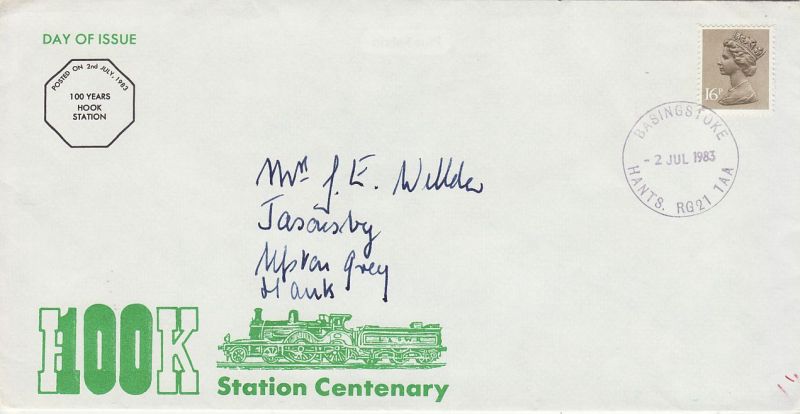 DAY OF ISSUE
POSTED ON 2nd JULY, 1983
100 YEARS
HOOK
STATION
16P
BASINGSTOKE
- 2 JUL 1983
HANTS. RG21 1AA
Mr J. E. Willder
Upton Grey
Hants
H100K
L.&S.W.R.
Station Centenary